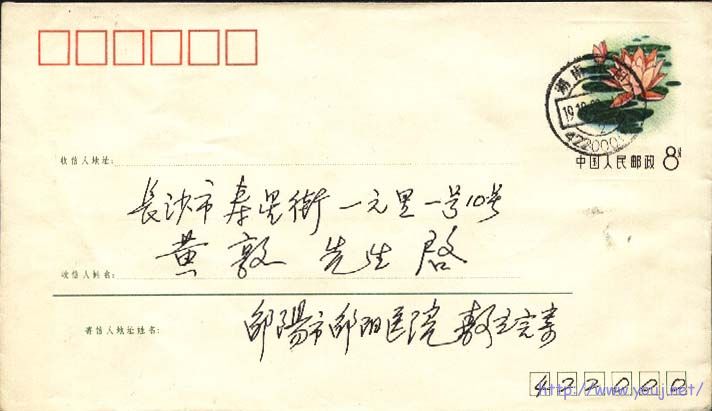 湖南
19.10
422000
中国人民邮政 8分
收信人地址:
长沙市寿星街一元里一号10号
黄敦 先生 启
收信人姓名:
寄信人地址姓名:
邵阳市邵阳医院
422000
http://www.youj.net/